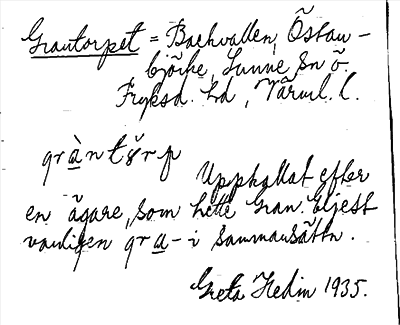 Grantorpet = Backvallen, Östan-
björke, Sunne sn ö.
Fryksd. hd, Värml. l.
gràntŏrp
Uppkallat efter
en ägare, som hette Gran. Eljest
vanligen gra- i sammansättn.
Greta Hedin 1935.